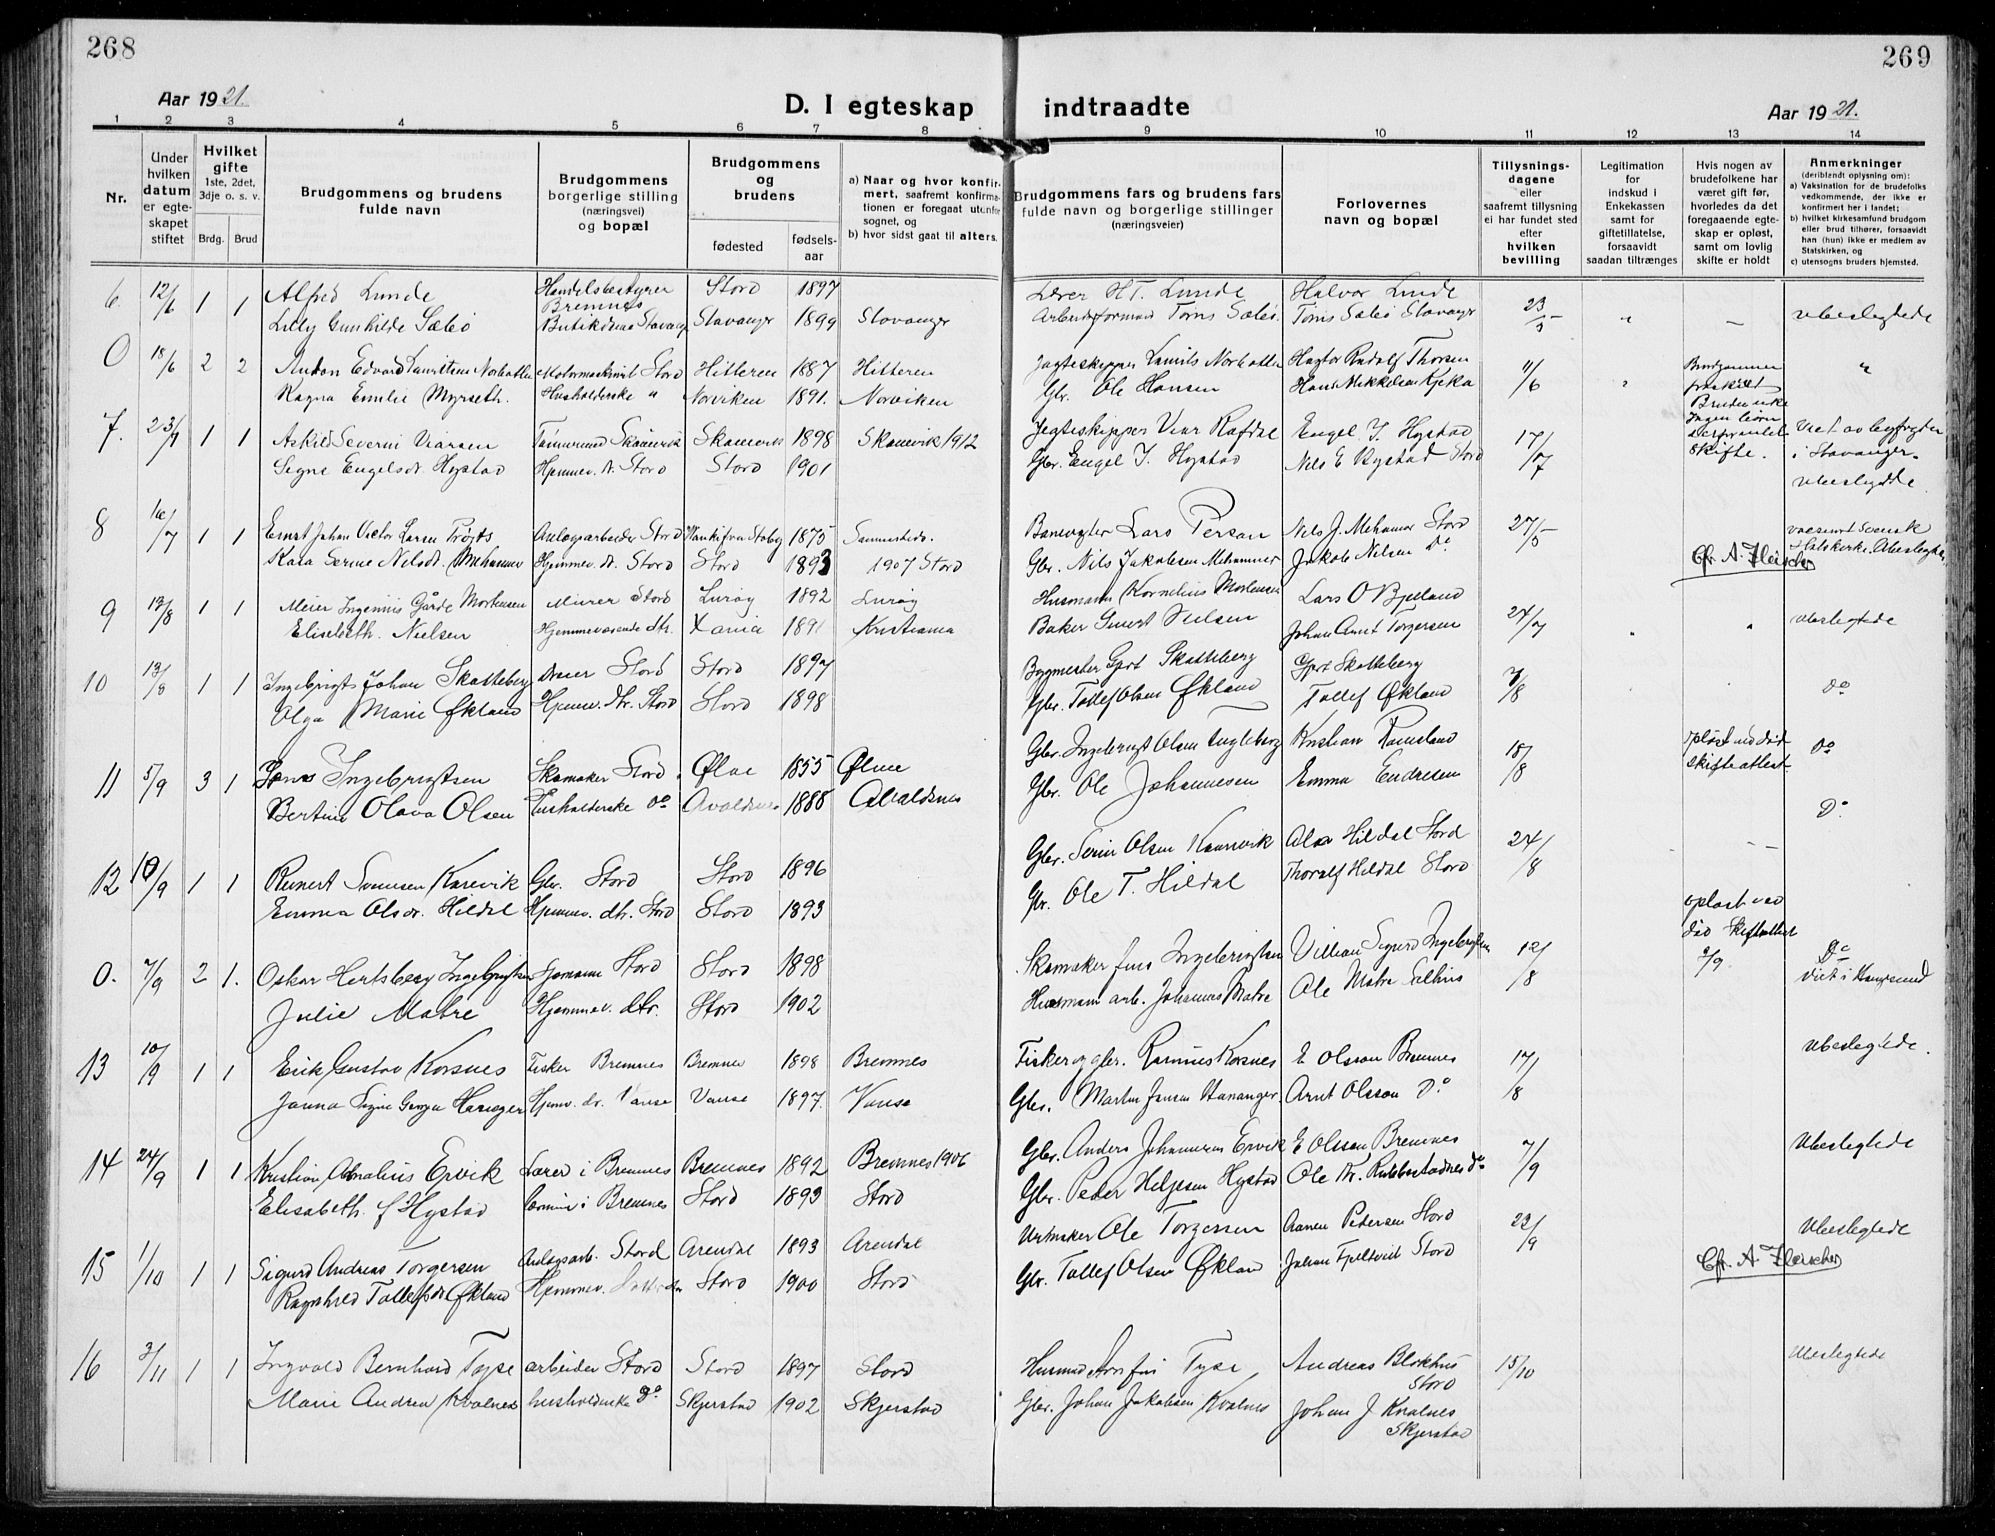 268
269
Aar 1921.
D. I egteskap indtraadte
Aar 1921.
1 2 3 4 5 6 7 8 9 10 11 12 13 14
Nr.
Under hvilken datum er egteskapet stiftet
Hvilket gifte 1ste, 2det, 3dje o. s. v.
Brdg. Brud
Brudgommens og brudens fulde navn
Brudgommens borgerlige stilling (næringsvei) og bopæl
Brudgommens og brudens
fødested
fødselsaar
a) Naar og hvor konfirmert, saafremt konfirmationen er foregaat utenfor sognet, og
b) hvor sidst gaat til alters.
Brudgommens fars og brudens fars fulde navn og borgerlige stillinger (næringsveier)
Forlovernes navn og bopæl
Tillysningsdagene eller saafremt tillysning ei har fundet sted efter hvilken bevilling
Legitimation for indskud i Enkekassen samt for giftetillatelse, forsaavidt saadan tiltrænges
Hvis nogen av brudefolkene har været gift før, hvorledes da det foregaaende egteskap er opløst, samt om lovlig skifte er holdt
Anmerkninger (deriblandt oplysning om):
a) Vaksination for de brudefolks vedkommende, der ikke er konfirmert her i landet;
b) hvilket kirkesamfund brudgom eller brud tilhører, forsaavidt han (hun) ikke er medlem av Statskirken, og
c) utensogns bruders hjemsted.
6. 12/6 1 1 Alfred Lunde Handelsbestyrer Bremnes Stord 1897 Lærer H T. Lunde Halvor Lunde 23/5 " — Ubeslegtede
Lilly Gunhilde Sæbø Butikdame Stavanger Stavanger 1899 Stavanger Arbeidsformand Tønis Sæbø. Tønis Sæbø Stavanger
0 18/6 2 2 Anton Edvard Lauritsen Norbotten Motormaskinist Stord Hitteren 1887 Hitteren Jagteskipper Laurits Norbotten Hagtor Rudolf Thorsen 11/6 " Brudgommen fraskilt "
Ragna Emilie Myrseth. Husholderske " Norviken 1891. Norviken Gbr. Ole Hansen Hans Mikkelsen Kjeka Bruden enke Ingen skifte.
7. 23/7 1 1 Askild Severin Viarsen Tømmermand Skånevik Skånevik 1898 Skånevik 1912 Jegteskipper Viar Rafdal Engel J. Hystad 17/7 Viet av byfogden i Stavanger.
Signe Engelsdr. Hystad Hjemmev. dr. Stord Stord 1901 Gbr. Engel J. Hystad Nils E Hystad Stord Ubeslegtede
8 16/7 1 1 Ernst Johan Victor Larsen Anlegsarbeider Stord 1875 Sammesteds. Banevogter Lars Person Nils J. Mehammer Stord 27/5
Kaia Serine Nilsdt. Mehammer Hjemmev. dr. Stord Stord 1893 1907 Stord Gbr. Nils Jakobsen Mehammer Jakob Nilsen Do Cfr. A. Fleischer Statskirke. Ubeslegtede
9 13/8 1 1 Meier Ingennius Gårde Mortensen Murer Stord Lurøy 1892 Lurøy Husmann Kornelius Mortensen Lars O Bjelland 24/7 " " Ubeslegtede
Elisabeth. Nielsen Hjemmeværende dtr. Xania 1891 Kristiania Baker Sivert Nielsen Johan Arnt Torgersen
10 13/8 1 1 Ingebrigt Johan Skatteberg Dreier Stord Stord 1897 Bygmester Gert Skatteberg Gert Skatteberg 7/8 " Do
Olga Marie Økland Hjemmev. dtr. Stord Stord 1898 Gbr. Tollef Olsen Økland Tollef Økland
11 5/9 3 1 Jens Ingebrigtsen Skomaker Stord. Ølve 1855 Ølve Gbr. Ingebrigt Olsen Kristian Ramsland 18/8 opløst ved død skifteattest Do
Bertine Olava Olsen Husholderske Do Avaldsnes 1888 Avaldsnes Gbr. Ole Johannesen Emma Endresen
12 10/9 1 1 Reinert Karevik Gbr. Stord Stord 1896 Gbr. Olsen Hildal Stord 24/8 — Do
Emma Olsdr. Hildal Hjemmev. dtr. Stord Stord 1893 Gbr. Ole T. Hildal Thoralf Hildal Stord
0. 7/9 2 1. Oskar Hertsberg Ingebrigtsen Sjømann Stord Stord 1898 Skomaker Jens Ingebrigtsen Villian Sigurd Ingebrigtsen 12/8 opløst ved død Skifteattest 2/9. Do
Julie Matre Hjemmev. dtr. Stord 1902 Husmann arb. Johannes Matre Ole Matre Viet i Haugesund
13 10/9 1 1 Erik Gustav Korsnes Fisker Bremnes Bremnes 1898 Bremnes Fisker og gbr. Rasmus Korsnes E Olsson Bremnes 17/8 Ubeslegtede.
Janna Signe Hananger Hjemv. dr. Vanse Vanse 1897. Vanse Gbr. Martin Jensen Hananger. Arnt Olsson Do
14 24/9 1 1 Kristian Ervik Lærer i Bremnes Bremnes 1892 Bremnes 1906 Gbr. Anders Johannesen Ervik E Olsson Bremnes 7/9 Ubeslegtede
Elisabeth f Hystad i Bremnes Stord 1893 Stord Gbr. Peder Helgesen Hystad Ole Kr. Do
15 1/10 1 1 Sigurd Andreas Torgersen Anlegsarb. Stord Arendal 1893 Arendal Urmaker Ole Torgersen Aanen Pedersen Stord 23/9 Ubeslegtede
Ragnhild Tollefsdr Økland Hjemmev. Stord 1900 Stord Gbr. Tollef Olsen Økland Johan Fjeltveit Stord Cfr. A. Fleischer
16 3/11 1 1 Ingvald Bernhard Tyse arbeider Stord Stord 1897 Stord Husmand Tyse Andreas Blokhus Stord 15/10 Ubeslegtede
Marie Andrea Kvalnes husholderske Do Skjerstad 1902 Skjerstad Gbr. Johan Jakobsen Kvalnes Johan J Kvalnes Skjerstad